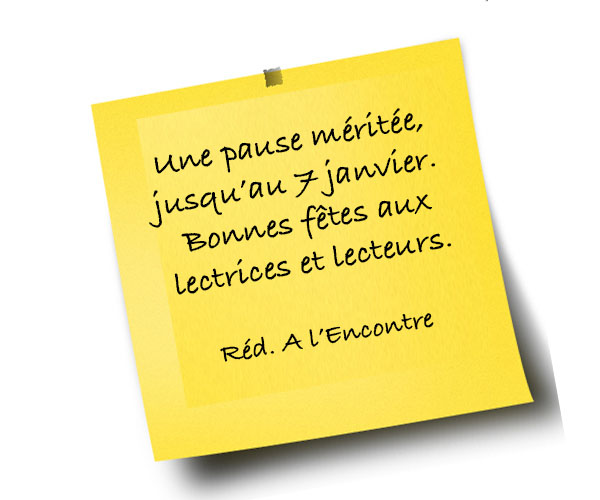 Une pause méritée,
jusqu'au 7 janvier.
Bonnes fêtes aux
lectrices et lecteurs.
Réd. A l'Encontre